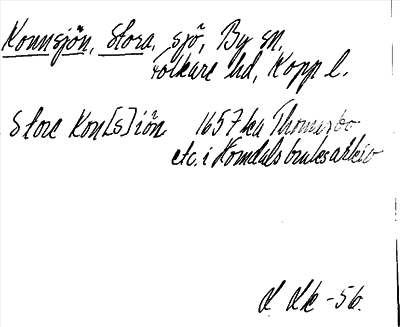 Konnsjön, Stora, sjö, By sn,
Folkare hd, Kopp l.
Store Kon[s]iön 1657 ka Thomasbo
etc. i Horndals bruksarkiv